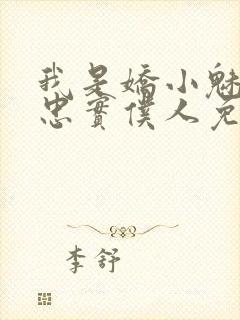 我是嬌小魅
忠實僕人免
李舒